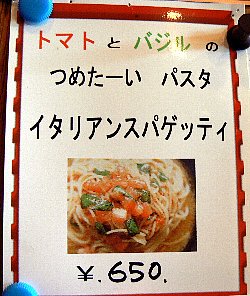 トマトとバジルの
つめたーい パスタ
イタリアンスパゲッティ
¥.650.